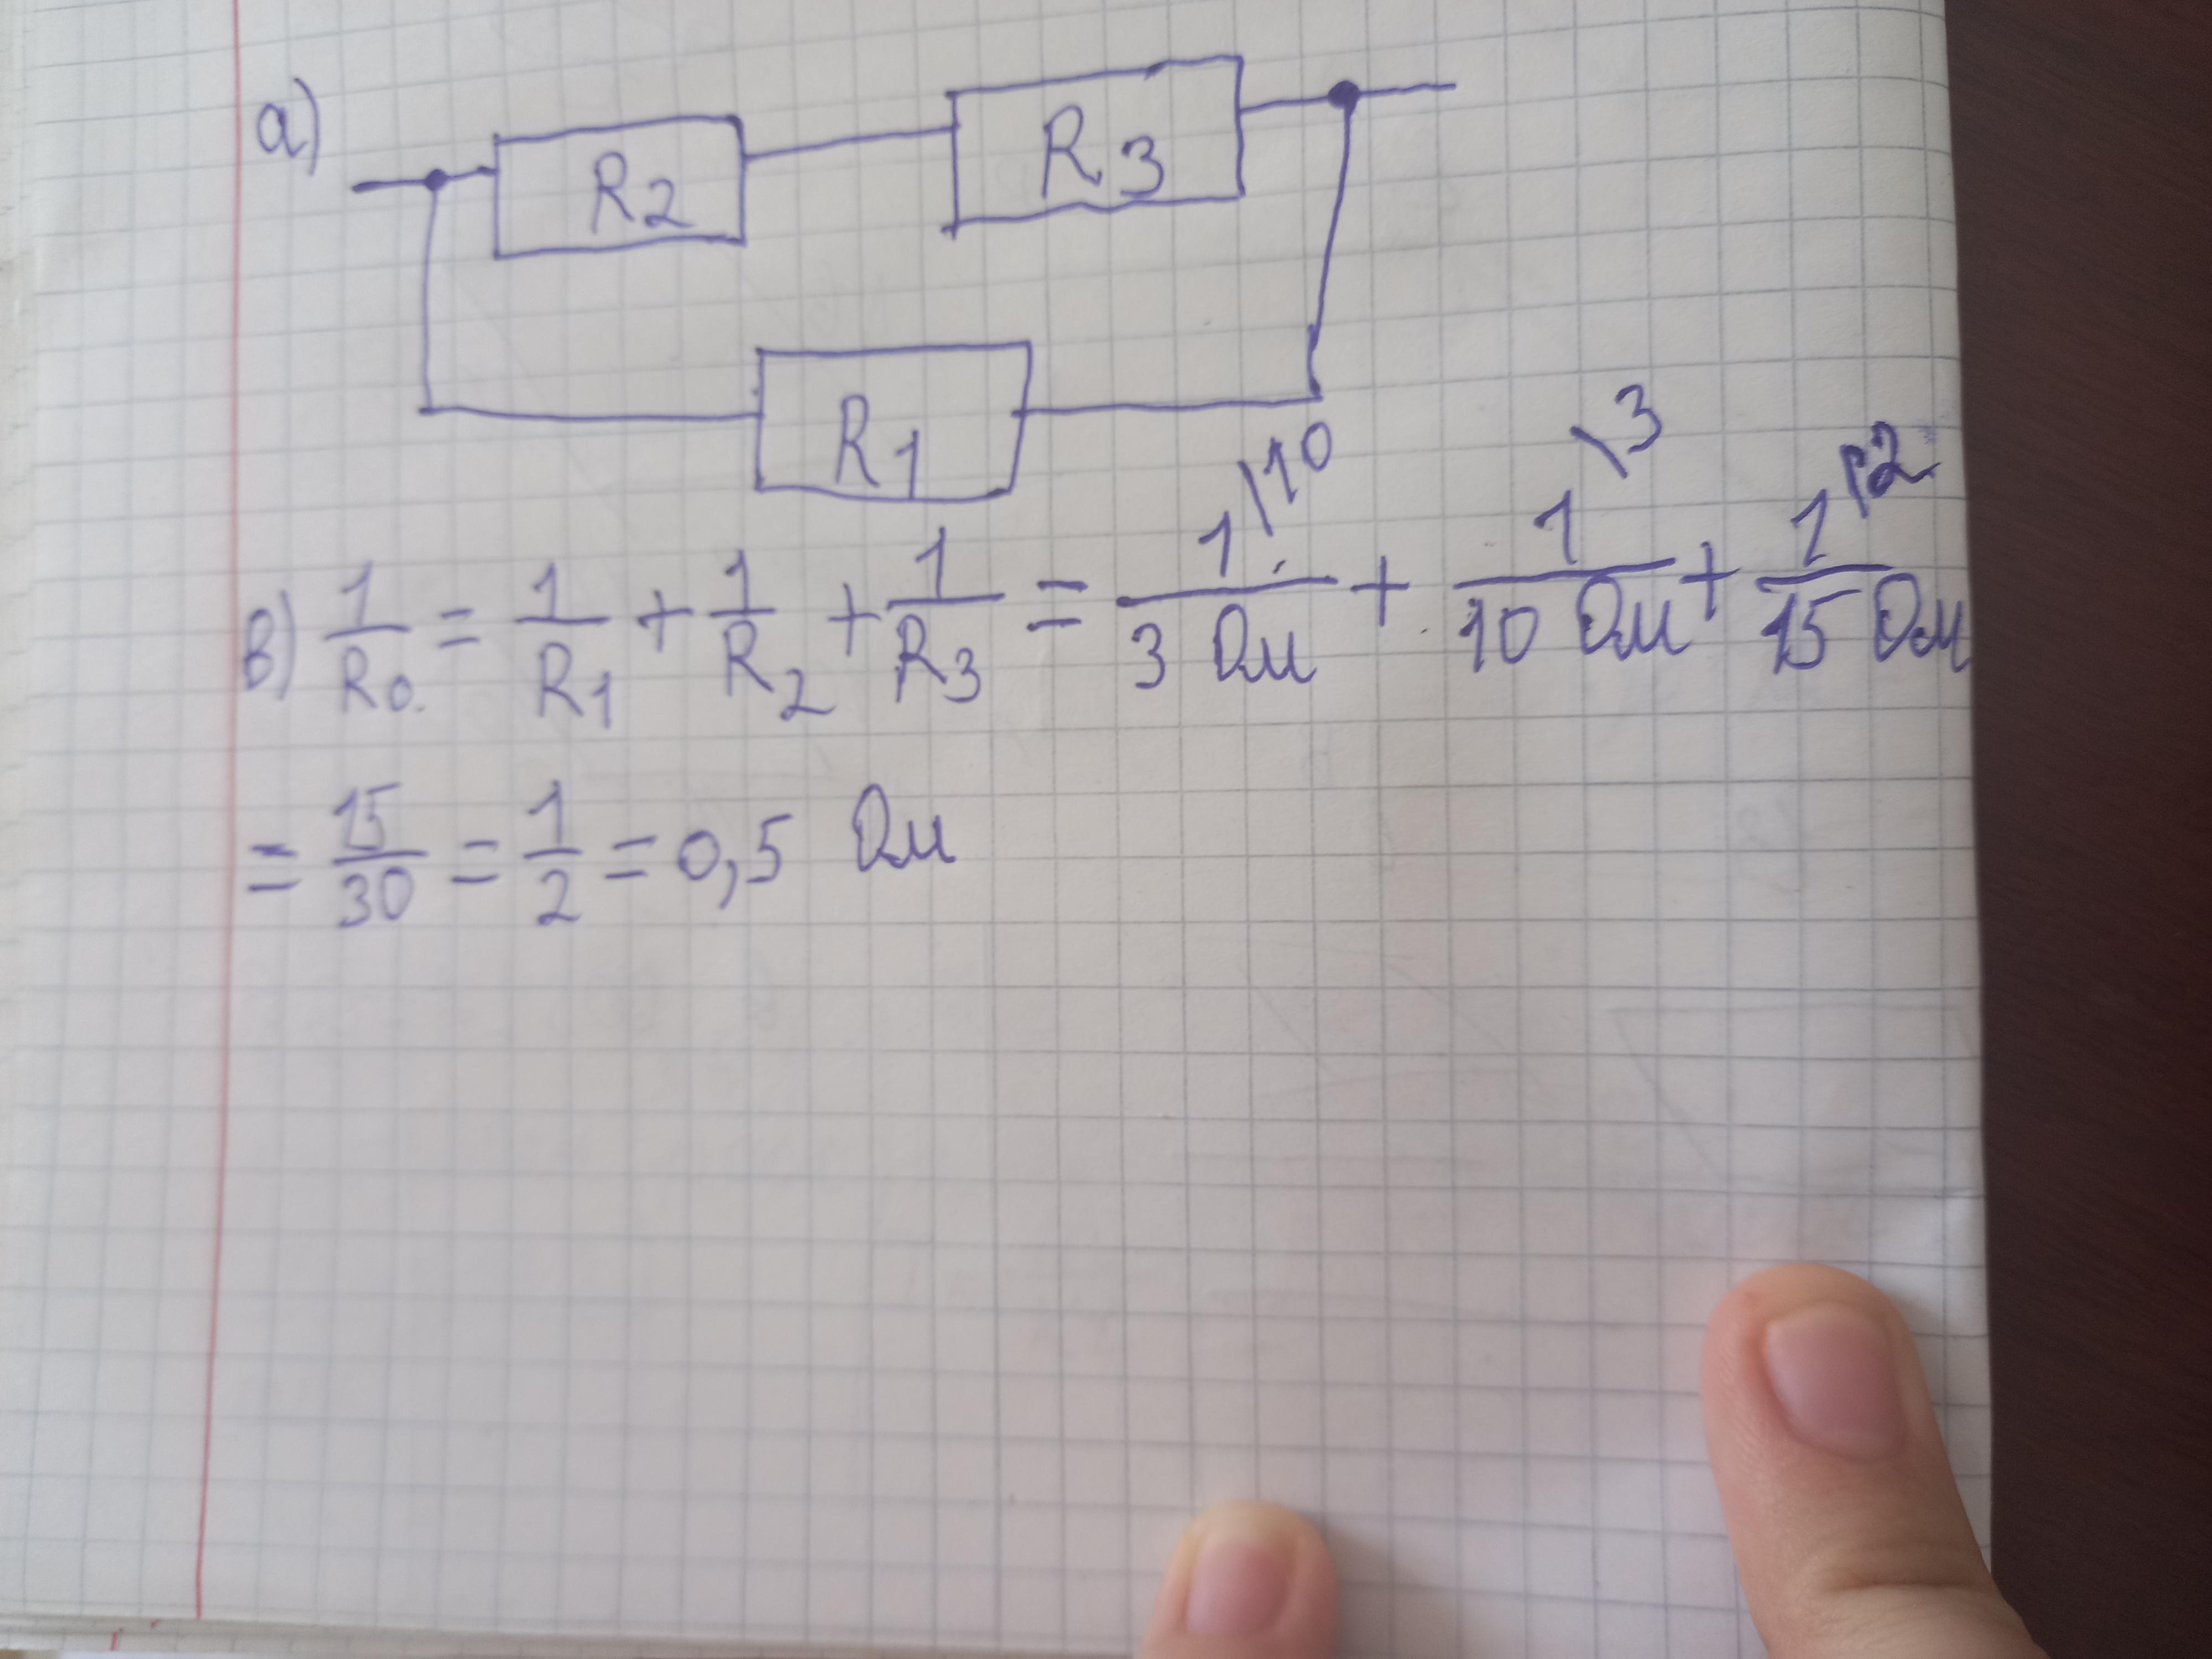 а)
R2 R3
R1
в) 1/R0 = 1/R1 + 1/R2 + 1/R3 = 1\10/3 Ом + 1\3/10 Ом + 1\2/15 Ом
= 15/30 = 1/2 = 0,5 Ом